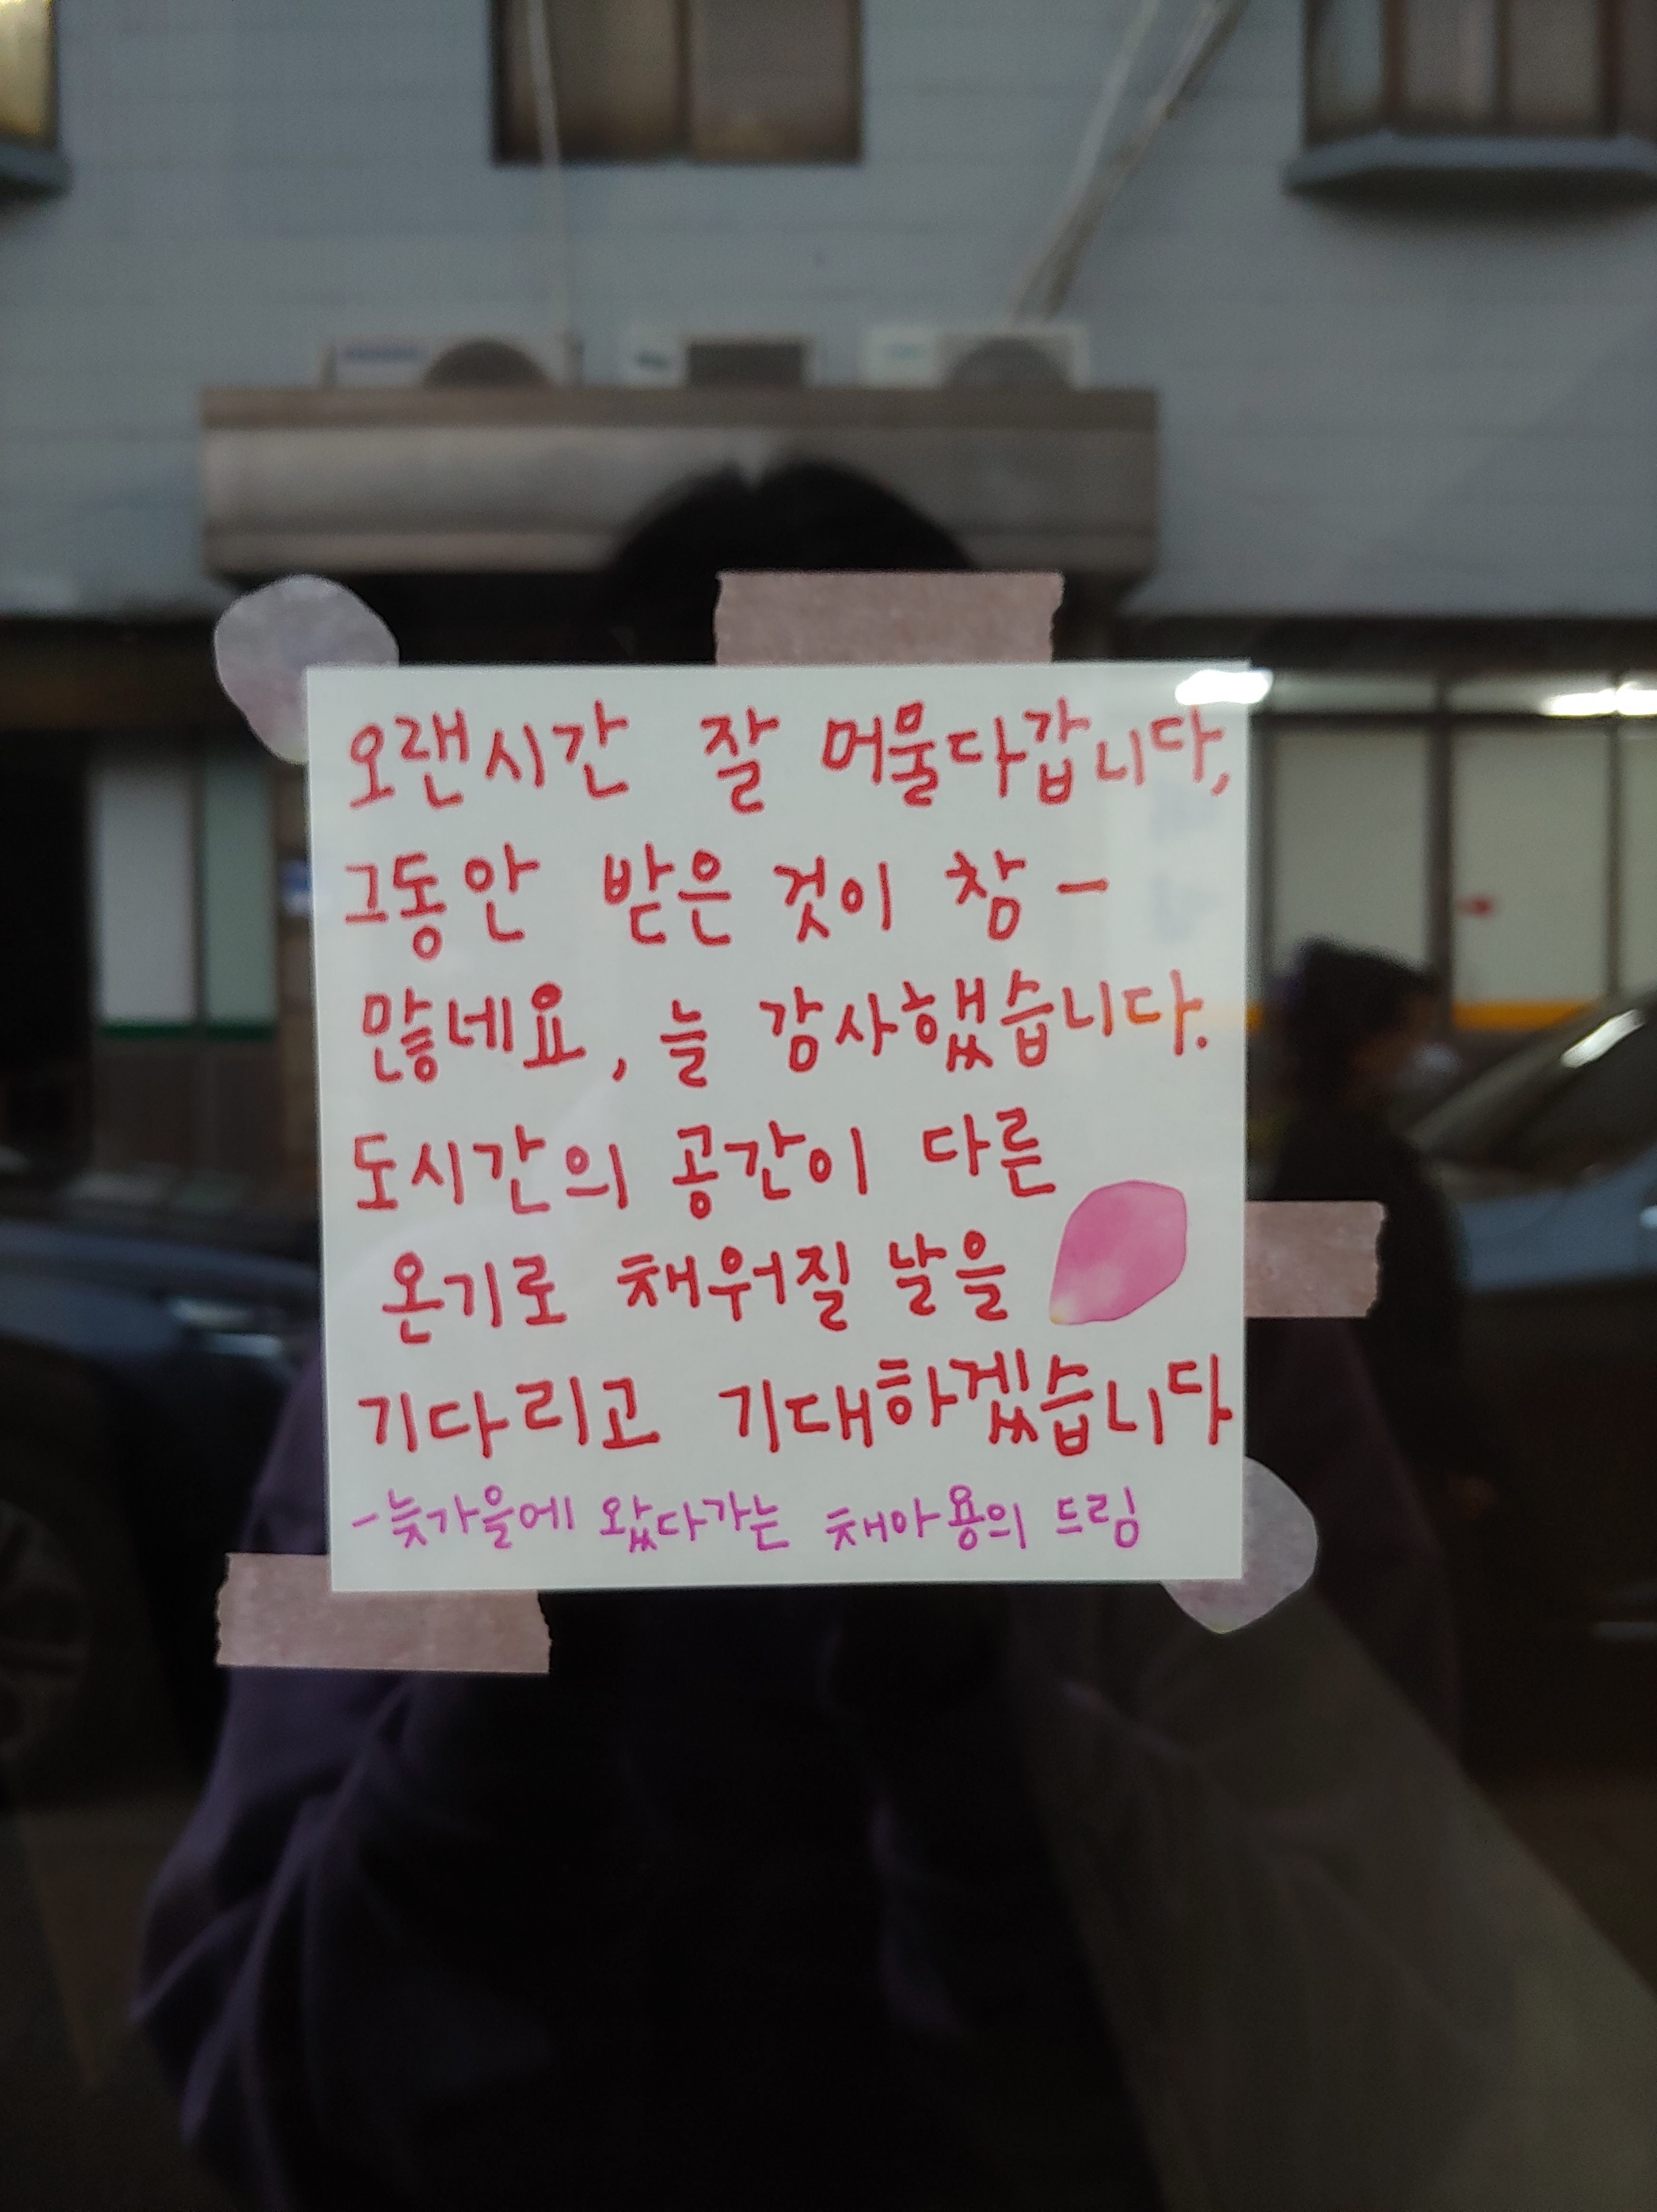 오랜시간 잘 머물다갑니다,
그동안 받은 것이 참-
많네요, 늘 감사했습니다.
도시간의 공간이 다른
온기로 채워질 날을
기다리고 기대하겠습니다
-늦가을에 왔다가는 채아용의 드림